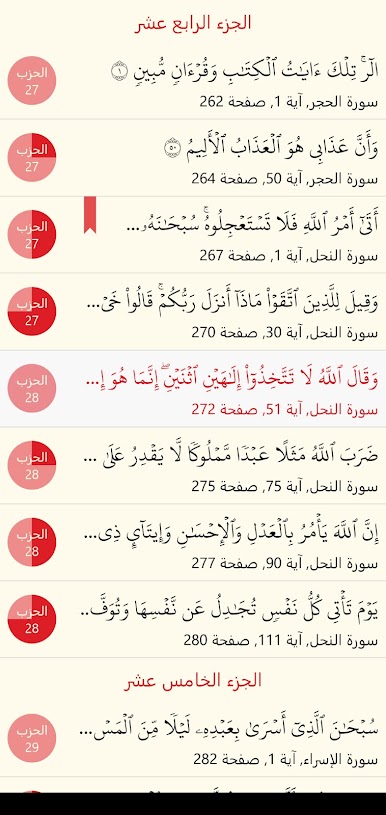 الجزء الرابع عشر
الٓرۚ تِلۡكَ ءَايَٰتُ ٱلۡكِتَٰبِ وَقُرۡءَانٖ مُّبِينٖ ١
سورة الحجر, آية 1, صفحة 262
الحزب
27
وَأَنَّ عَذَابِي هُوَ ٱلۡعَذَابُ ٱلۡأَلِيمُ ٥٠
سورة الحجر, آية 50, صفحة 264
الحزب
27
أَتَىٰٓ أَمۡرُ ٱللَّهِ فَلَا تَسۡتَعۡجِلُوهُۚ سُبۡحَٰنَهُۥ...
سورة النحل, آية 1, صفحة 267
الحزب
27
وَقِيلَ لِلَّذِينَ ٱتَّقَوۡاْ مَاذَآ أَنزَلَ رَبُّكُمۡۚ قَالُواْ خَيۡ...
سورة النحل, آية 30, صفحة 270
الحزب
27
وَقَالَ ٱللَّهُ لَا تَتَّخِذُوٓاْ إِلَٰهَيۡنِ ٱثۡنَيۡنِۖ إِنَّمَا هُوَ إِ...
سورة النحل, آية 51, صفحة 272
الحزب
28
ضَرَبَ ٱللَّهُ مَثَلًا عَبۡدٗا مَّمۡلُوكٗا لَّا يَقۡدِرُ عَلَىٰ ...
سورة النحل, آية 75, صفحة 275
الحزب
28
إِنَّ ٱللَّهَ يَأۡمُرُ بِٱلۡعَدۡلِ وَٱلۡإِحۡسَٰنِ وَإِيتَآيِٕ ذِي...
سورة النحل, آية 90, صفحة 277
الحزب
28
يَوۡمَ تَأۡتِي كُلُّ نَفۡسٖ تُجَٰدِلُ عَن نَّفۡسِهَا وَتُوَفَّ...
سورة النحل, آية 111, صفحة 280
الحزب
28
الجزء الخامس عشر
سُبۡحَٰنَ ٱلَّذِيٓ أَسۡرَىٰ بِعَبۡدِهِۦ لَيۡلٗا مِّنَ ٱلۡمَسۡ...
سورة الإسراء, آية 1, صفحة 282
الحزب
29